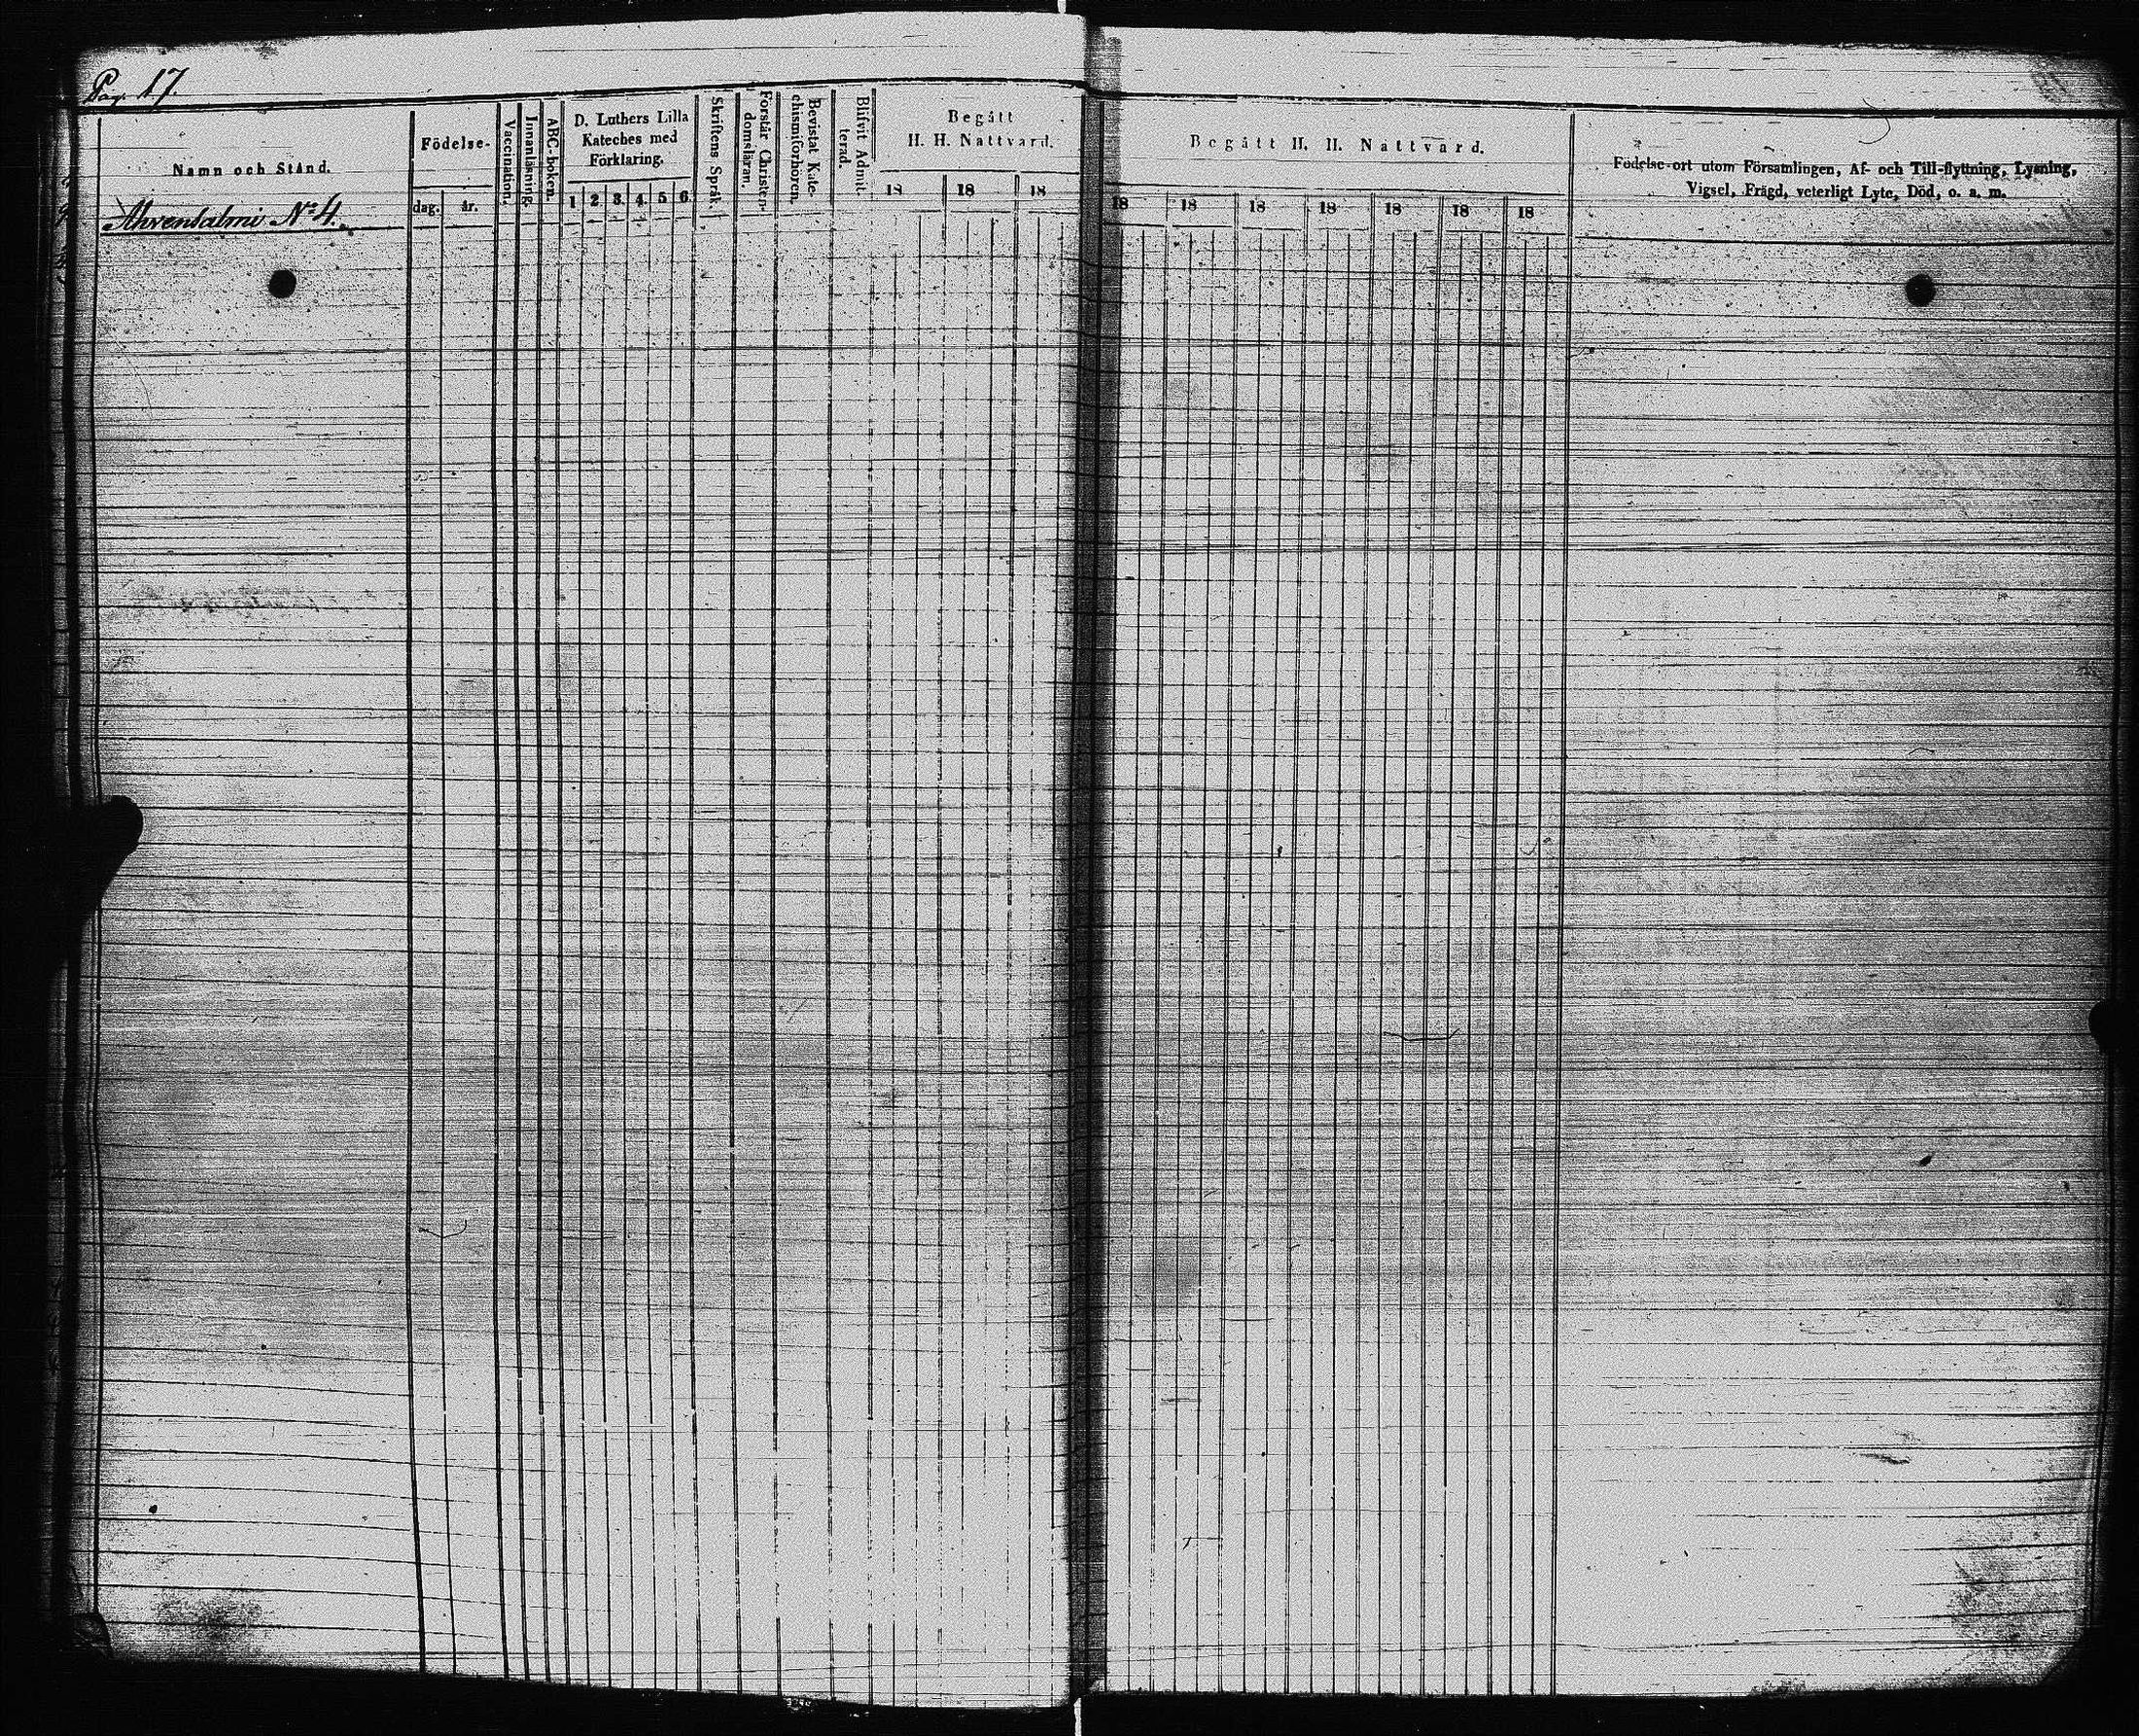 Pag. 17
Namn och Stånd.
Födelse-
dag.
år.
Vaccination.
Innanläsning.
ABC-boken.
D. Luthers Lilla
Kateches med
Förklaring.
1 2 3. 4. 5 6
Skriftens Språk.
Förstår Christen-
domsläran.
Bevistat Kate-
chismiförhören.
Blifvit Admit-
terad.
Begått
H. H. Nattvard.
18 18 18
Begått H. H. Nattvard.
18 18 18 18 18 18 18
Födelse-ort utom Församlingen, Af- och Till-flyttning, Lysning,
Vigsel, Frägd, veterligt Lyte, Död, o. a. m.
Ahvensalmi No 4.